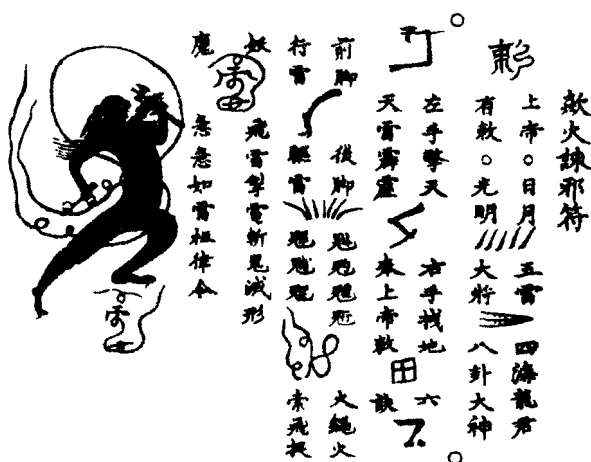 欻火諫邪符
上帝○日月 五雷 四海龍君
有敕○光明 大將 八卦大神
左手擎天 右手栈地 六
天雷霹靂 奉上帝敕 訣
前脚 後脚 火繩火
行雷 驅雷 索飛捉
妖 飛雷掣電斬鬼滅形
魔 急急如雷祖律令